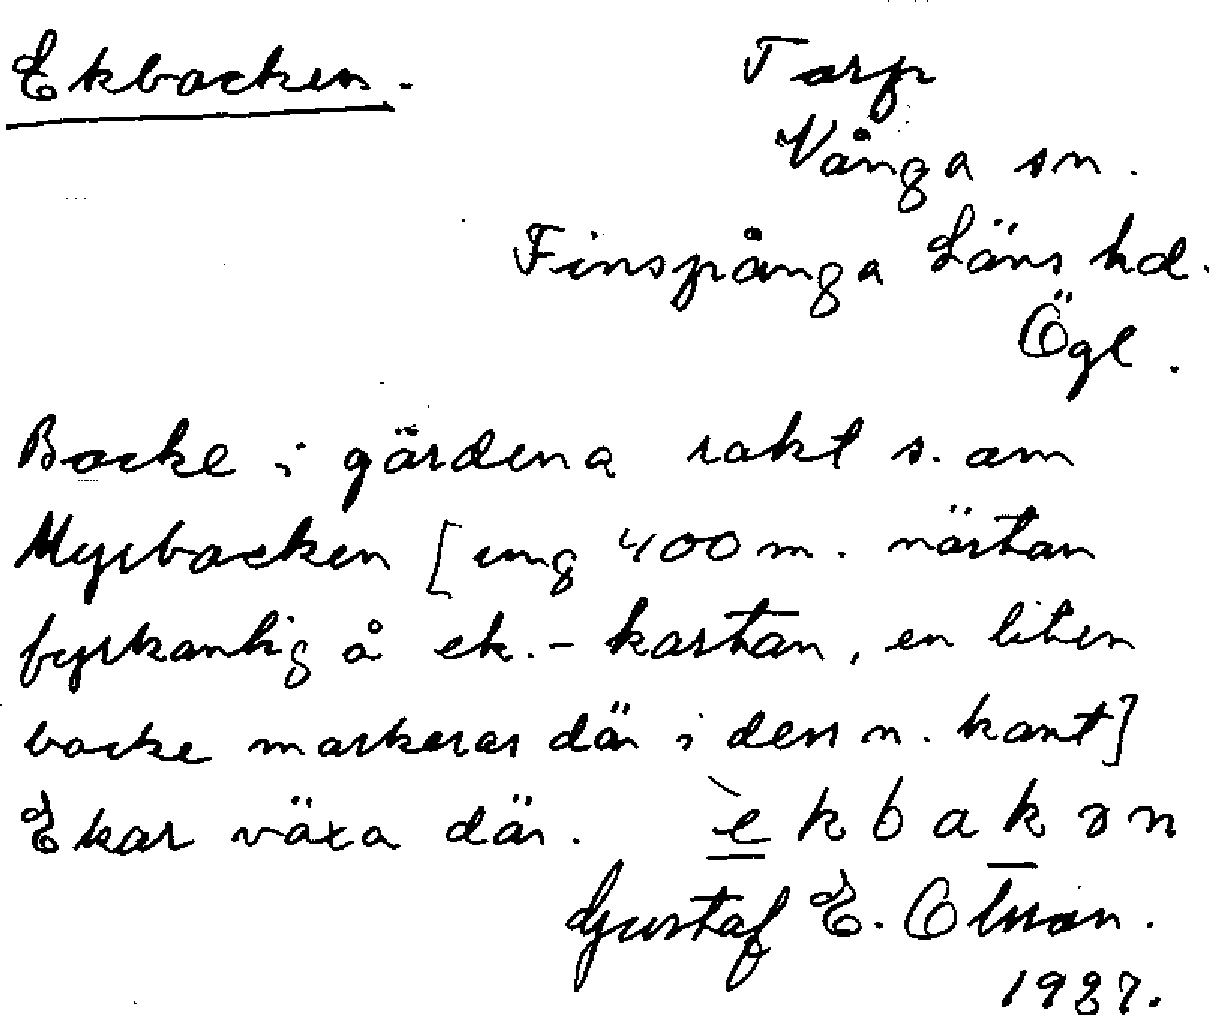 Ekbacken.
Torp
Vånga sn.
Finspånga Läns hd.
Ögl.
Backe i gärdena rakt s. om
Myrbacken [ung 400 m. nästan
fyrkantig å ek.-kartan, en liten
backe markeras där i dess n. kant]
Ekar växa där. èkbakən
Gustaf E. Olsson.
1927.